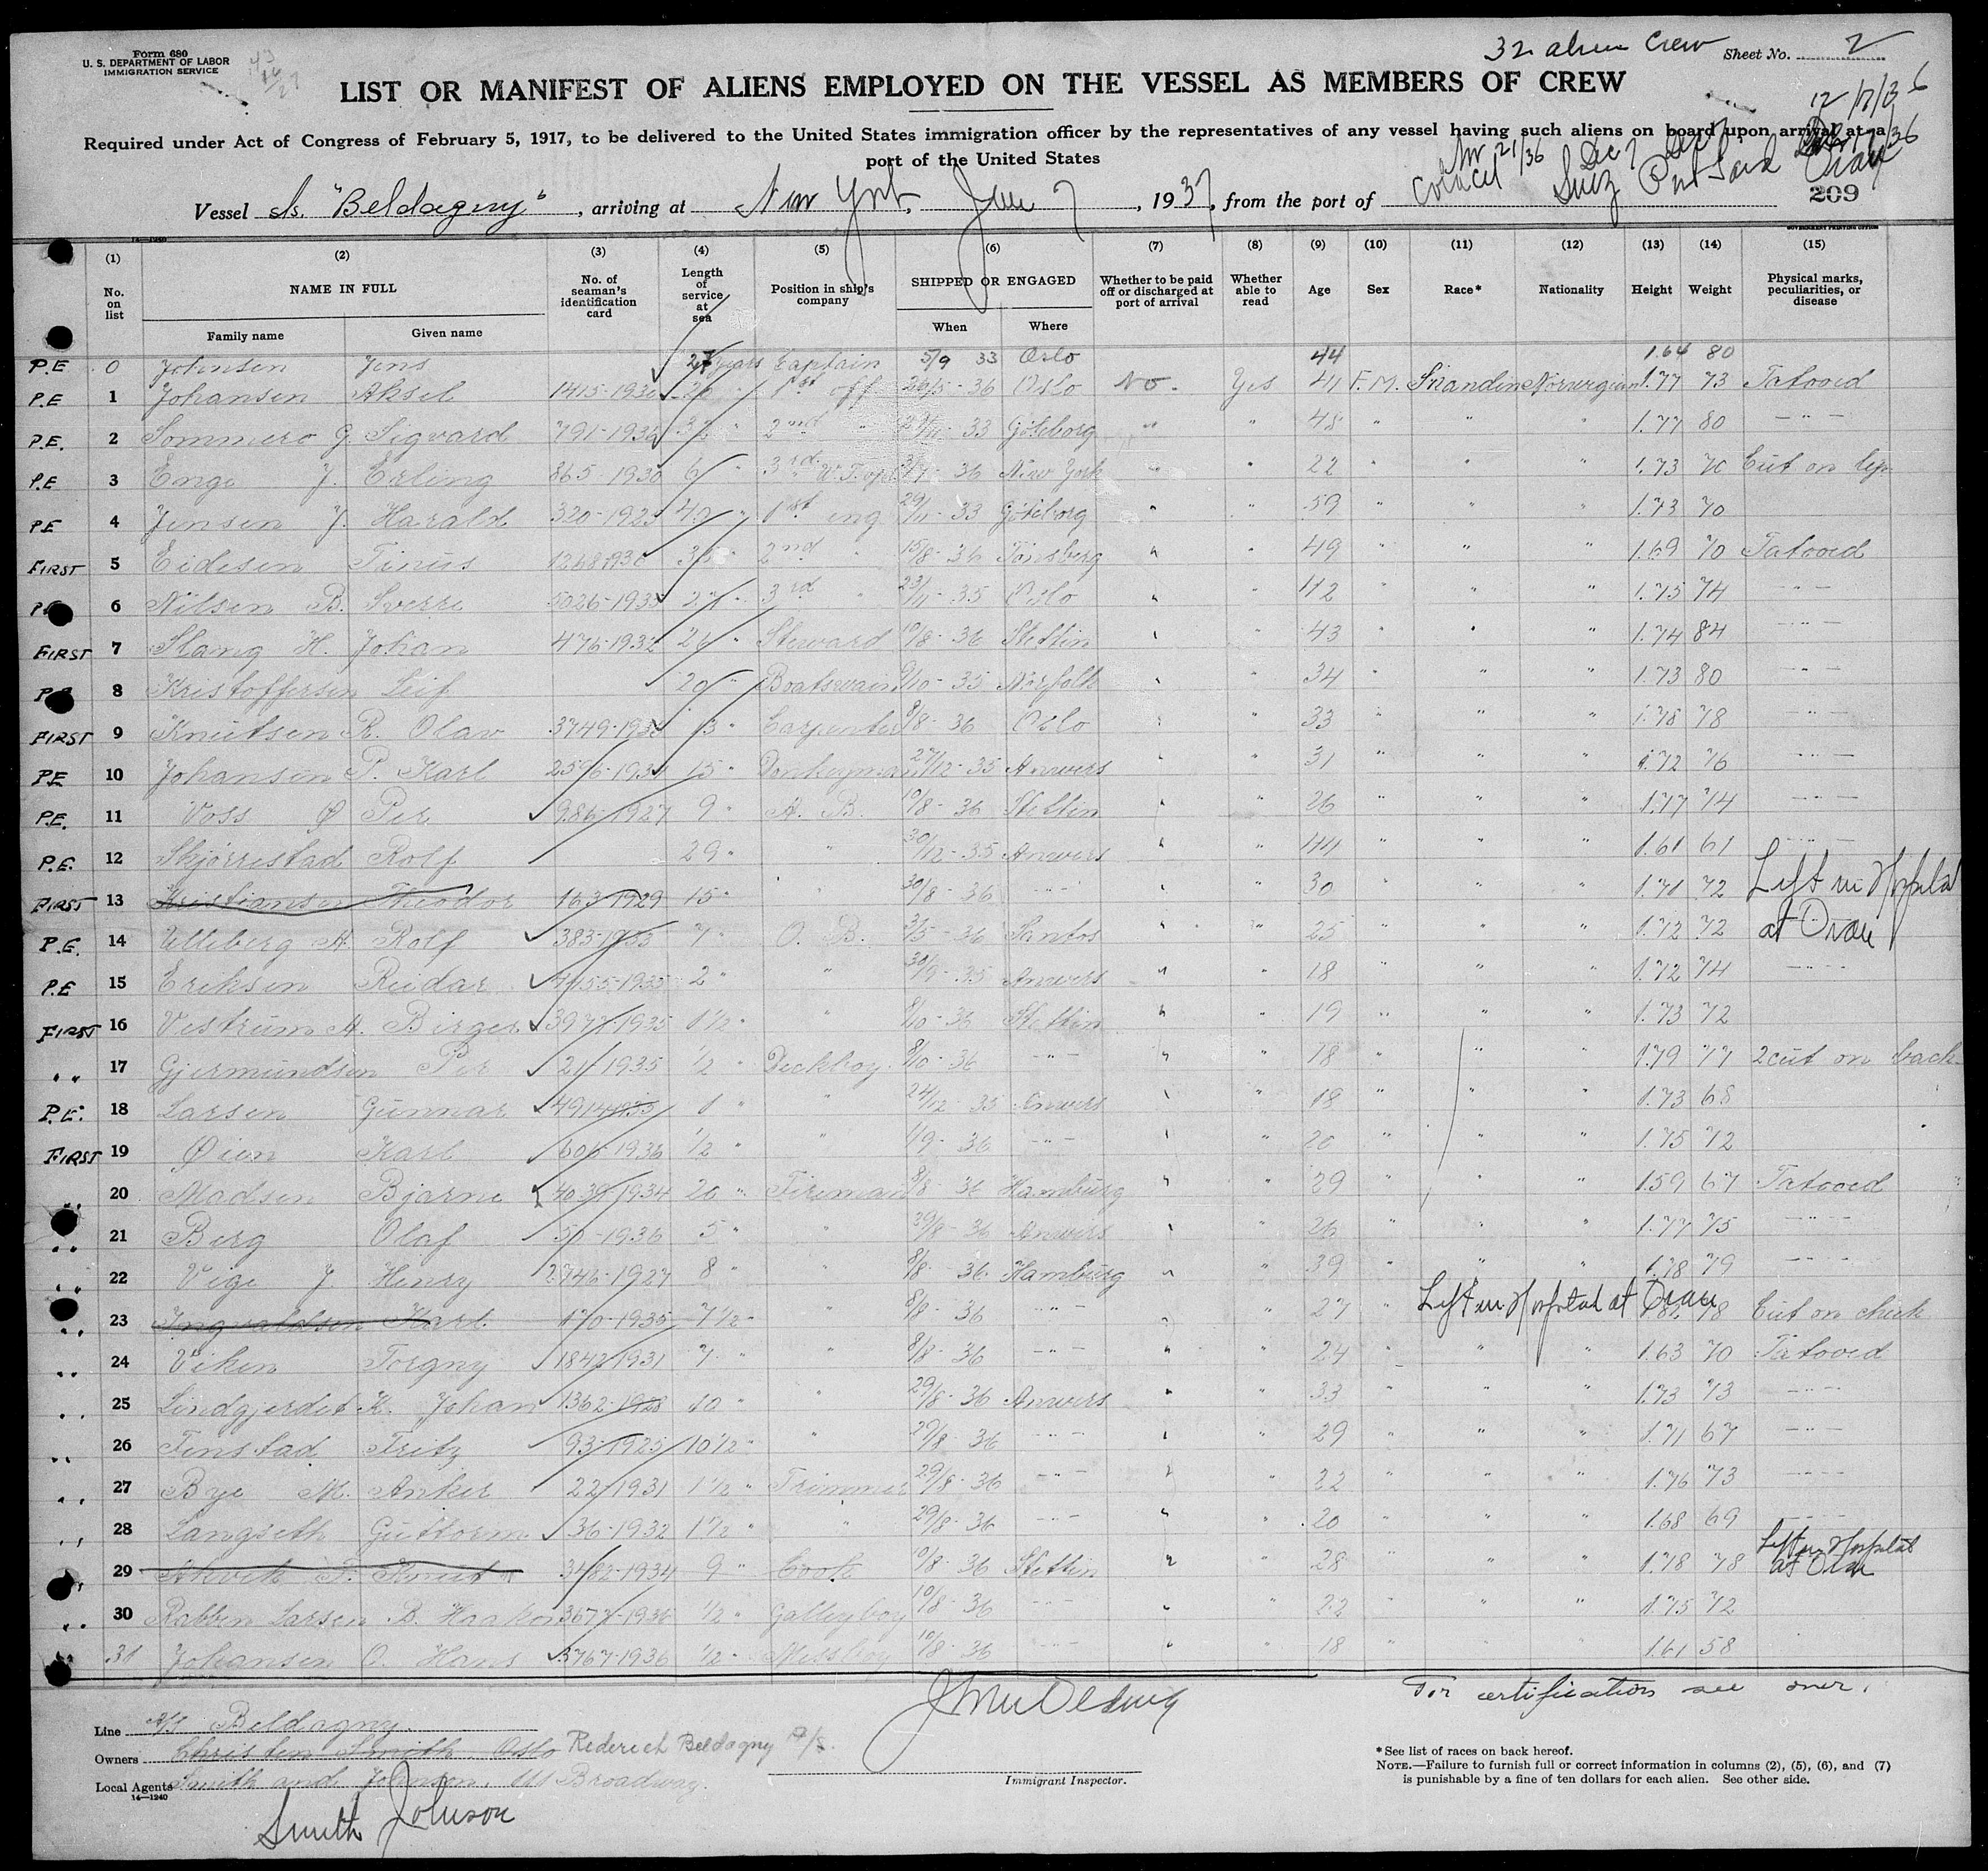 Form 680
U. S. DEPARTMENT OF LABOR
IMMIGRATION SERVICE
32 alien Crew Sheet No. 2
LIST OR MANIFEST OF ALIENS EMPLOYED ON THE VESSEL AS MEMBERS OF CREW
12/17/36
Required under Act of Congress of February 5, 1917, to be delivered to the United States immigration officer by the representatives of any vessel having such aliens on board upon arrival at a
port of the United States
Vessel Ss. "Beldagny", arriving at New York, Jan 7, 1937, from the port of Suez Port Said Oran
209
14—1240 GOVERNMENT PRINTING OFFICE
(1) (2) (3) (4) (5) (6) (7) (8) (9) (10) (11) (12) (13) (14) (15)
No. on list NAME IN FULL Family name Given name No. of seaman's identification card Length of service at sea Position in ship's company SHIPPED OR ENGAGED When Where Whether to be paid off or discharged at port of arrival Whether able to read Age Sex Race* Nationality Height Weight Physical marks, peculiarities, or disease
P.E 0 Johnsen Jens 27 years Captain 5/9 33 Oslo 44 1.64 80
P.E 1 Johansen Aksel 1415-1930 26 " 1st off 26/5-36 Oslo No. Yes 41 F.M. Skandin Norwegian 1.77 73 Tatooed
P.E. 2 Sommero G. Sigvard 791-1932 32 " 2nd " 29/11-33 Göteborg " " 48 " " " 1.77 80 — " —
P.E 3 Enge J. Erling 865-1930 6 " 3rd " W.T.op. 3/7-36 New York " " 22 " " " 1.73 70 Cut on leg
P.E 4 Jensen J. Harald 320-1925 40 " 1st eng 29/11-33 Göteborg " " 59 " " " 1.73 70
FIRST 5 Eidesen Tinius 1268-1930 35 " 2nd " 15/8-36 Tönsberg " " 49 " " " 1.69 70 Tatooed
6 Nilsen B. Sverre 5026-1935 27 " 3rd " 23/11-35 Oslo " " 42 " " " 1.75 74 — " —
FIRST 7 Slang H. Johan 476-1932 26 " Steward 10/8-36 Stettin " " 43 " " " 1.74 84 — " —
8 Kristoffersen Leif 20 " Boatswain 9/10-35 Norfolk " " 34 " " " 1.73 80 — " —
FIRST 9 Knutsen R. Olav 3749-1932 13 " Carpenter 8/8-36 Oslo " " 33 " " " 1.78 78 — " —
P.E 10 Johansen P. Karl 2596-1934 15 " Donkeyman 27/12-35 Anvers " " 31 " " " 1.72 76 — " —
P.E. 11 Voss Ø Per 986-1927 9 " A. B. 10/8-36 Stettin " " 26 " " " 1.77 74 — " —
P.E. 12 Skjørrestad Rolf 29 " " 30/12-35 Anvers " " 44 " " " 1.61 61 — " —
FIRST 13 Kristiansen Theodor 163-1929 15 " " 30/8-36 — " — " 30 " " " 1.71 72 Left in Hospital
P.E. 14 Ulleberg A. Rolf 383-1935 7 " O. B. 3/5-36 Santos " " 25 " " " 1.72 72 at Oran
P.E 15 Eriksen Reidar 4455-1935 2 " " 30/9-35 Anvers " " 18 " " " 1.72 74 — " —
FIRST 16 Vestrum A. Birger 3977-1935 1 1/2 " " 8/10-36 Stettin " " 19 " " " 1.73 72
" 17 Gjermundsen Per 21-1935 1/2 " Deckboy 8/10-36 — " — " " 18 " " " 1.79 77 2 cut on back
P.E. 18 Larsen Gunnar 4914-1935 1 " " 24/12-35 Anvers " " 18 " " " 1.73 68
FIRST 19 Øien Karl 606-1936 1/2 " " 1/9-36 — " — " " 20 " " " 1.75 72
" 20 Madsen Bjarne 4039-1934 20 " Fireman 8/8-36 Hamburg " " 29 " " " 1.59 67 Tatooed
" 21 Berg Olaf 50-1936 5 " " 29/8-36 Anvers " " 26 " " " 1.77 75 — " —
" 22 Vige J. Henry 2746-1927 8 " " 8/8-36 Hamburg " " 39 " " " 1.78 79 — " —
" 23 Ingvaldsen Karl 170-1935 7 1/2 " " 8/8-36 — " — " " 27 " Left in Hospital at Oran 78 Cut on chick
" 24 Viken Torgny 1842-1931 7 " " 8/8-36 — " — " " 24 " " " 1.63 70 Tatooed
" 25 Lindgjerdet K. Johan 1362-1928 10 " " 29/8-36 Anvers " " 33 " " " 1.73 73 — " —
" 26 Finstad Fritz 93-1925 10 1/2 " " 29/8-36 — " — " " 29 " " " 1.71 67 — " —
" 27 Bye M. Anker 22-1931 1 1/2 " Trimmer 29/8-36 — " — " " 22 " " " 1.76 73 — " —
" 28 Langseth Guttorm 36-1932 1 1/2 " " 29/8-36 — " — " " 20 " " " 1.68 69 — " —
29 Knut 3482-1934 9 " Cook 10/8-36 Stettin " " 28 " " " 1.78 78 Left in Hospital at Oran
" 30 Rabben Larsen B. Haakon 3677-1936 1/2 " Galleyboy 10/8-36 — " — " " 22 " " " 1.75 72
31 Johansen O. Hans 3767-1936 1/2 " Messboy 10/8-36 — " — " " 18 " " " 1.61 58
For certification see over.
Line A/S Beldagny.
Owners Christen Smith Oslo Rederiet Beldagny A/S.
Local Agents Smith and Johnson, Broadway.
14—1240
Smith Johnson
Immigrant Inspector.
*See list of races on back hereof.
NOTE.—Failure to furnish full or correct information in columns (2), (5), (6), and (7)
is punishable by a fine of ten dollars for each alien. See other side.